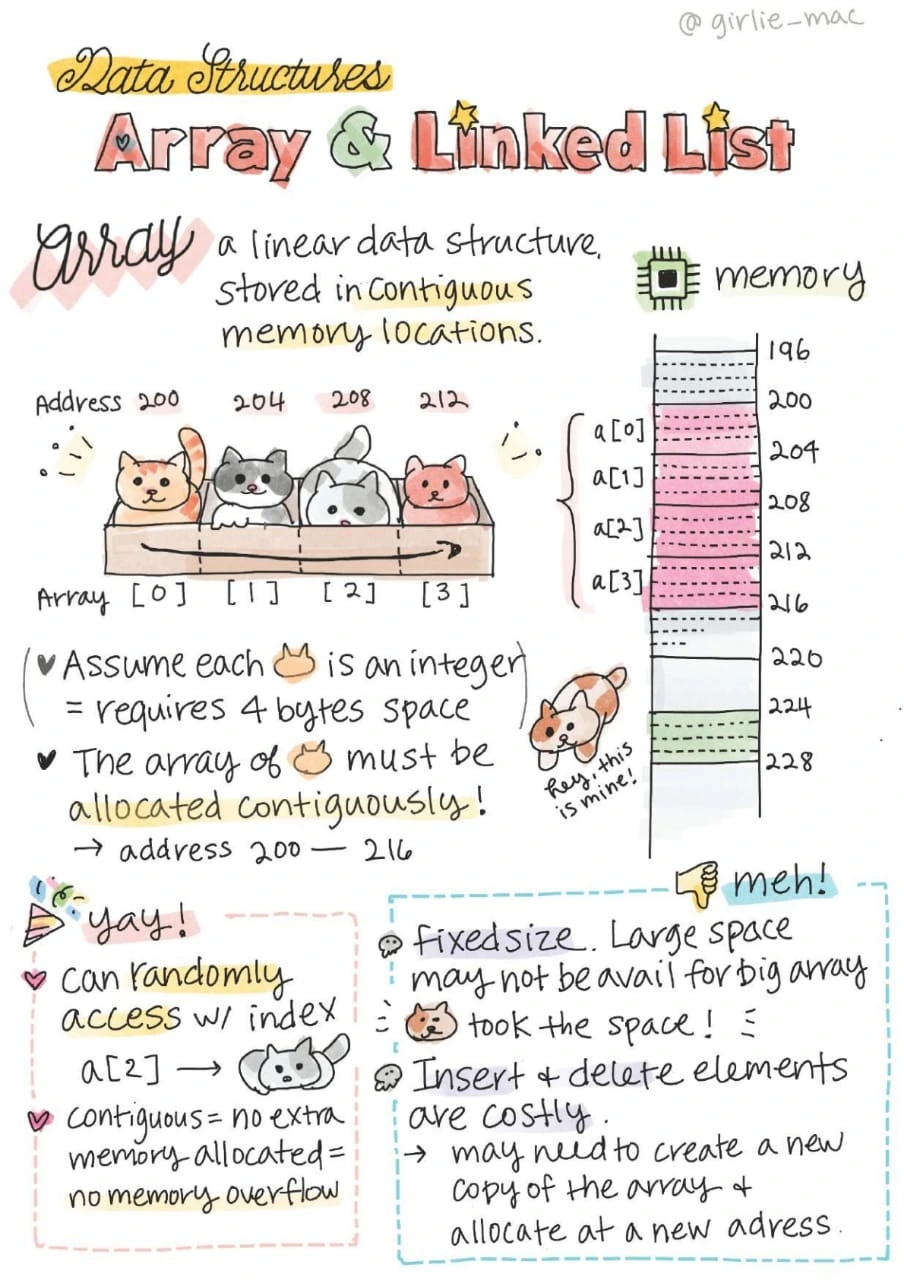 @girlie_mac
Data Structures
Array & Linked List
array
a linear data structure,
stored in contiguous
memory locations.
memory
Address 200 204 208 212
Array [0] [1] [2] [3]
196
200
a[0]
204
a[1]
208
a[2]
212
a[3]
216
220
224
228
hey, this
is mine!
(♥ Assume each is an integer
= requires 4 bytes space)
♥ The array of must be
allocated contiguously!
→ address 200 — 216
yay!
can randomly
access w/ index
a[2] →
contiguous = no extra
memory allocated =
no memory overflow
meh!
fixed size. Large space
may not be avail for big array
took the space!
Insert & delete elements
are costly.
→ may need to create a new
copy of the array &
allocate at a new adress.